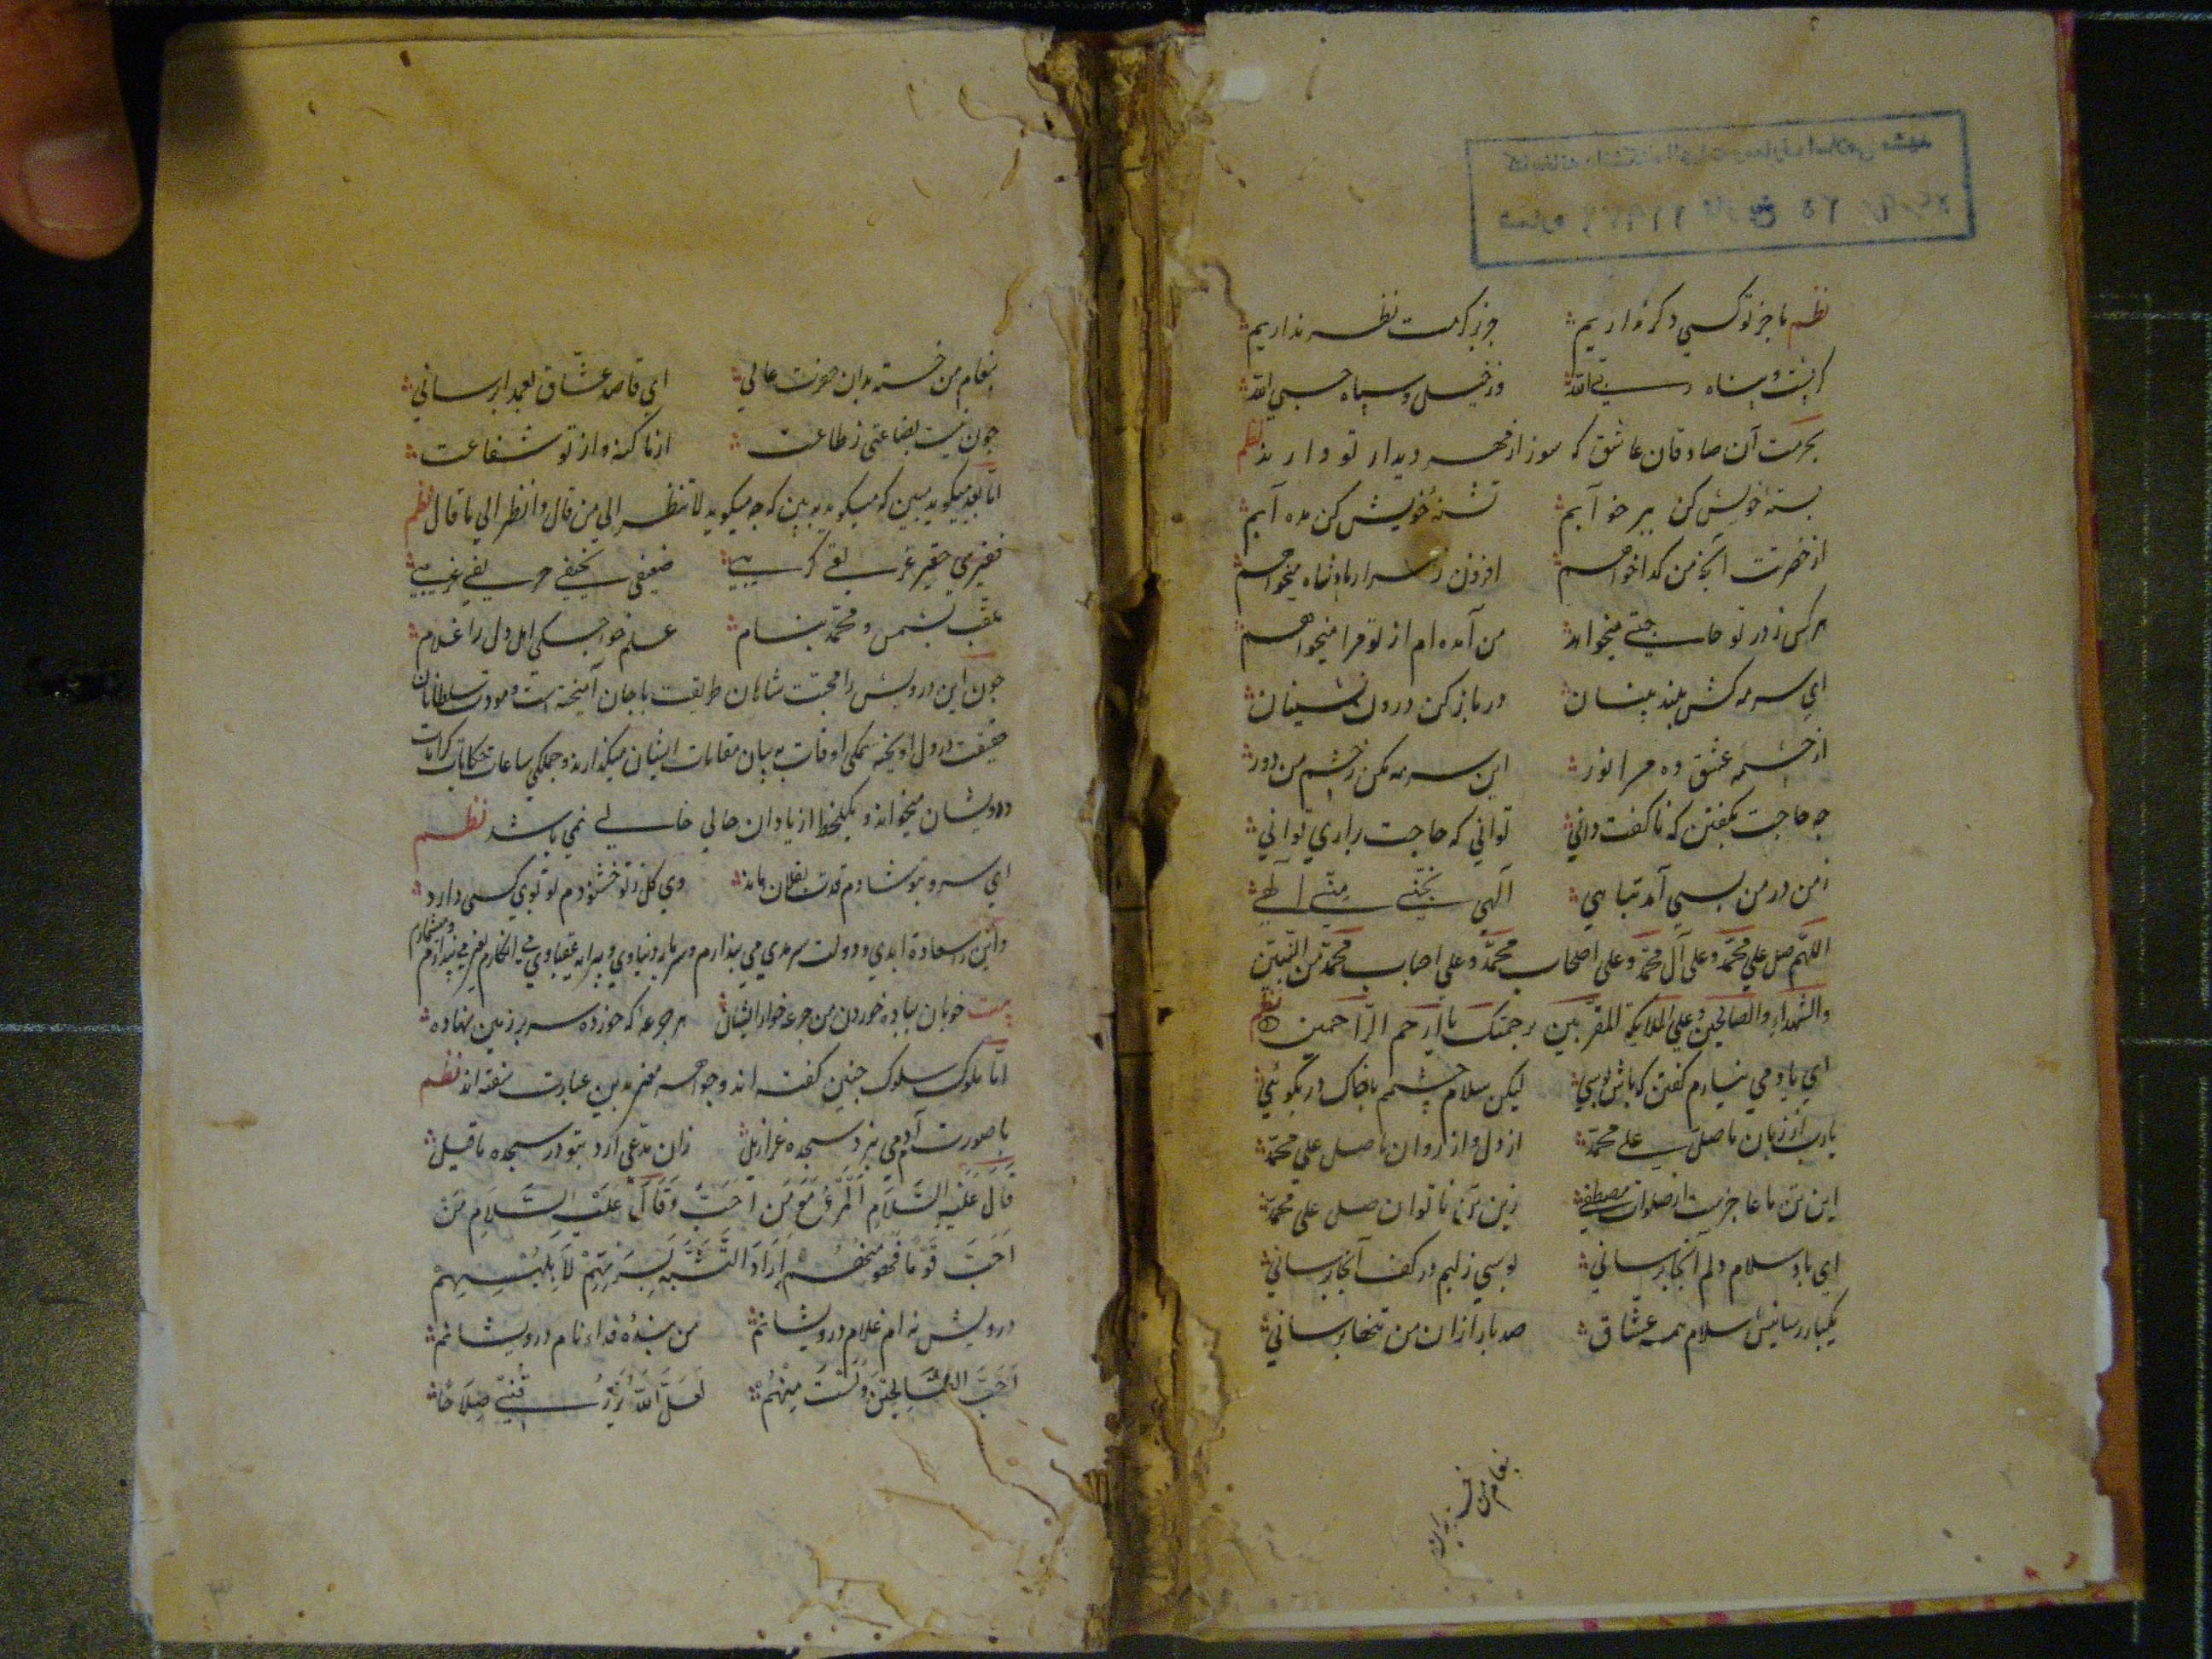 نظم ما جز تو کسی دکر نداریم جز بر کرمت نظر نداریم
کر پشت و پناه ربی الله وز خیل و سپاه حسبی الله
بحرمت آن صادقان عاشق که سوز از مهر دیدار تو دارند نظم
بستهٔ خویش کن ببر خوابم تشنهٔ خویش کن مده آبم
از حضرتت آنچه من کدا خواهم افزون ز هزار پادشاه میخواهم
هر کس ز در تو حاجتی میخواهد من آمده ام از تو ترا میخواهم
ای سرمه کش بلند بینان در باز کن درون نشینان
از چشمه عشق ده مرا نور این سرمه مکن ز چشم من دور
چه حاجت بکفتن که ناکفت دانی توانی که حاجت براری توانی
ز من در من بسی آمد تباهی الهی نجنی منی الهی
اللهم صل علی محمد و علی آل محمد و علی اصحاب محمد و علی احباب محمد من النبیین
والشهداء والصالحین و علی الملایکة المقربین برحمتک یا ارحم الراحمین نظم
ای باد می نیارم کفتن که پاش بوسی لیکن سلام چشمم با خاک در بکوئی
یارب از زبان ما صل علی محمد از دل و از روان ما صل علی محمد
این تن ما عاجزست از صلوات مصطفی زین تن ناتوان صل علی محمد
ای باد سلام دلم آنجا برسانی بوسی ز لبم در کف آنجا برسانی
یکبار رسانیش سلام همه عشاق صد بار ازان من تنها برسانی
پیغام من خسته بدان
پیغام من خسته بدان حضرت عالی ای قاصد عشاق بعمدا برسانی
چون نیست بضاعتی ز طاعت از ما کنه و از تو شفاعت
اما بعد میکوید مبین که میکوید ببین که چه میکوید لا تنظر الی من قال وانظر الی ما قال نظم
فقیری حقیری غریبی ضعیفی نحیفی حریفی غریبی
ملقب بشمس و محمد بنام علم خواجکی اهل دل را غلام
چون این درویش را محبت شاهان طریقت با جان آمیخته است و مودت سلطانان
حقیقت در دل اویخته همکی اوقات به بیان مقامات ایشان میکذراند و جملکی ساعات حکایات کرامات
درویشان میخواند و یکلحظه از یاد ان حالی خالی نمی باشد نظم
ای سرو بتو شادم قدت بفلان ماند وی کل ز تو خشنودم تو بوی کسی داری
و این را سعادة ابدی و دولت سرمدی می پندارم و سرمایه دنیاوی و پیرایه عقباوی می انکارم و میشمارم
بیت خوبان بباده خوردن من جرعه خوار ایشان هر جرعهٔ که خورده سر بر زمین نهاده
اما ملوک سلوک چنین کفته اند و جواهر معنی بدین عبارت سفته اند نظم
با صورت آدمی نبرد سجده عزازیل زان مدعی ارد بتو در سجده ما قیل
قَالَ عَلَیْهِ السَّلَامِ اَلْمَرْءُ مَعَ مَنْ اَحَبَّ وَقَالَ عَلَیْهِ السَّلَامِ مَنْ
اَحَبَّ قَوْمًا فَهُوَ مِنْهُمْ اَرَادَ التَّشَبُّهَ بِسِیْرَتِهِمْ لَا بِلِبْسِهِمْ
درویش نه ام غلام درویشانم من بندهٔ فداء نام درویشانم
اُحِبُّ الصَّالِحِیْنَ وَلَسْتُ مِنْهُمْ لَعَلَّ اللهَ یَرْزُقُنِیْ صَلَاحًا